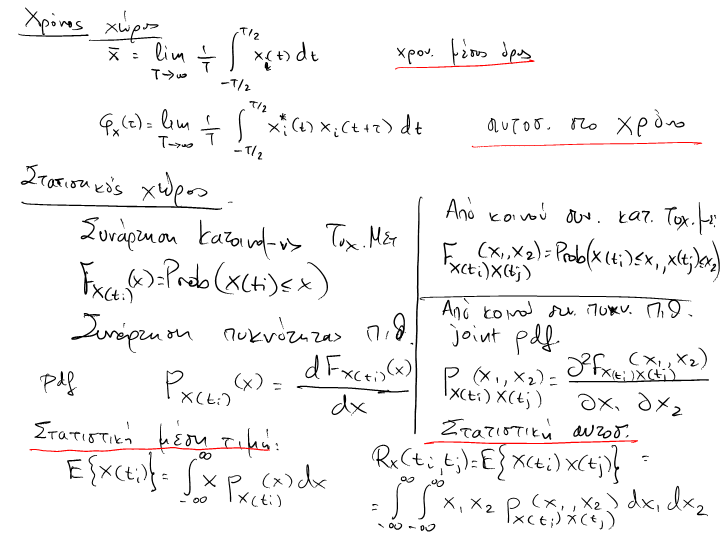 Χρόνος χώρος
x̄ = lim T→∞ 1/T ∫_{-T/2}^{T/2} x_i(t) dt χρον. μέσος όρος
φ_x(τ) = lim T→∞ 1/T ∫_{-T/2}^{T/2} x_i*(t) x_i(t+τ) dt αυτοσ. στο χρόνο
Στατιστικός χώρος
Συνάρτηση κατανομ-ης Τυχ. Μετ
F_{X(ti)}(x) = Prob(X(ti) ≤ x)
Συνάρτηση πυκνότητας πιθ.
pdf P_{X(ti)}(x) = dF_{X(ti)}(x) / dx
Στατιστική μέση τιμή:
E{X(ti)} = ∫_{-∞}^{∞} x p_{X(ti)}(x) dx
Από κοινού συν. κατ. Τυχ. με.
F_{X(ti)X(tj)}(x1, x2) = Prob(X(ti) ≤ x1, X(tj) ≤ x2)
Από κοινού συν. πυκν. πιθ.
joint pdf
P_{X(ti)X(tj)}(x1, x2) = ∂²F_{X(ti)X(tj)}(x1, x2) / ∂x1 ∂x2
Στατιστική αυτοσ.
Rx(ti, tj) = E{X(ti) X(tj)} =
= ∫_{-∞}^{∞} ∫_{-∞}^{∞} x1 x2 p_{X(ti)X(tj)}(x1, x2) dx1 dx2